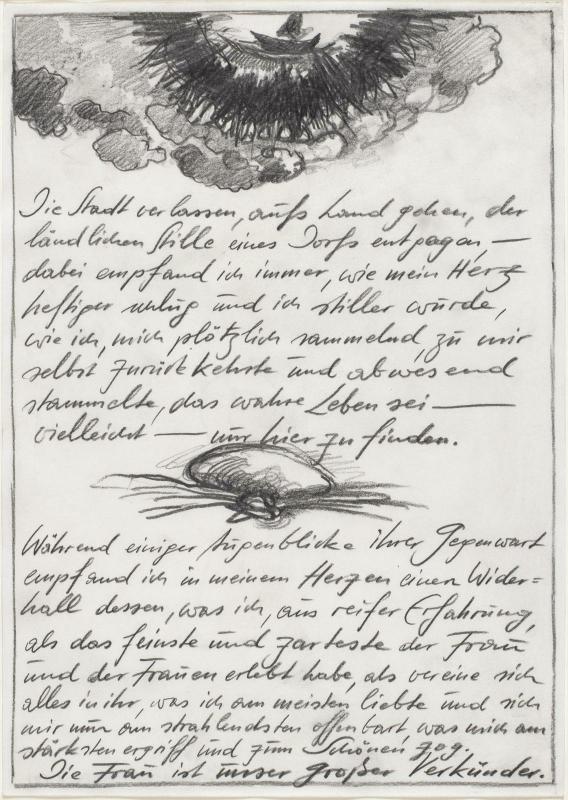 Die Stadt verlassen, aufs Land gehen, der
ländlichen Stille eines Dorfs entgegen, —
dabei empfand ich immer, wie mein Herz
heftiger schlug und ich stiller wurde,
wie ich, mich plötzlich sammelnd, zu mir
selbst zurückkehrte und abwesend
stammelte, das wahre Leben sei —
vielleicht — nur hier zu finden.
Während einiger Augenblicke ihrer Gegenwart
empfand ich in meinem Herzen einen Wider=
hall dessen, was ich, aus reifer Erfahrung,
als das feinste und zarteste der Frau
und der Frauen erlebt habe, als vereine sich
alles in ihr, was ich am meisten liebte und sich
mir nun am strahlendsten offenbart, was mich am
stärksten ergriff und zum Schönen zog.
Die Frau ist unser großer Verkünder.